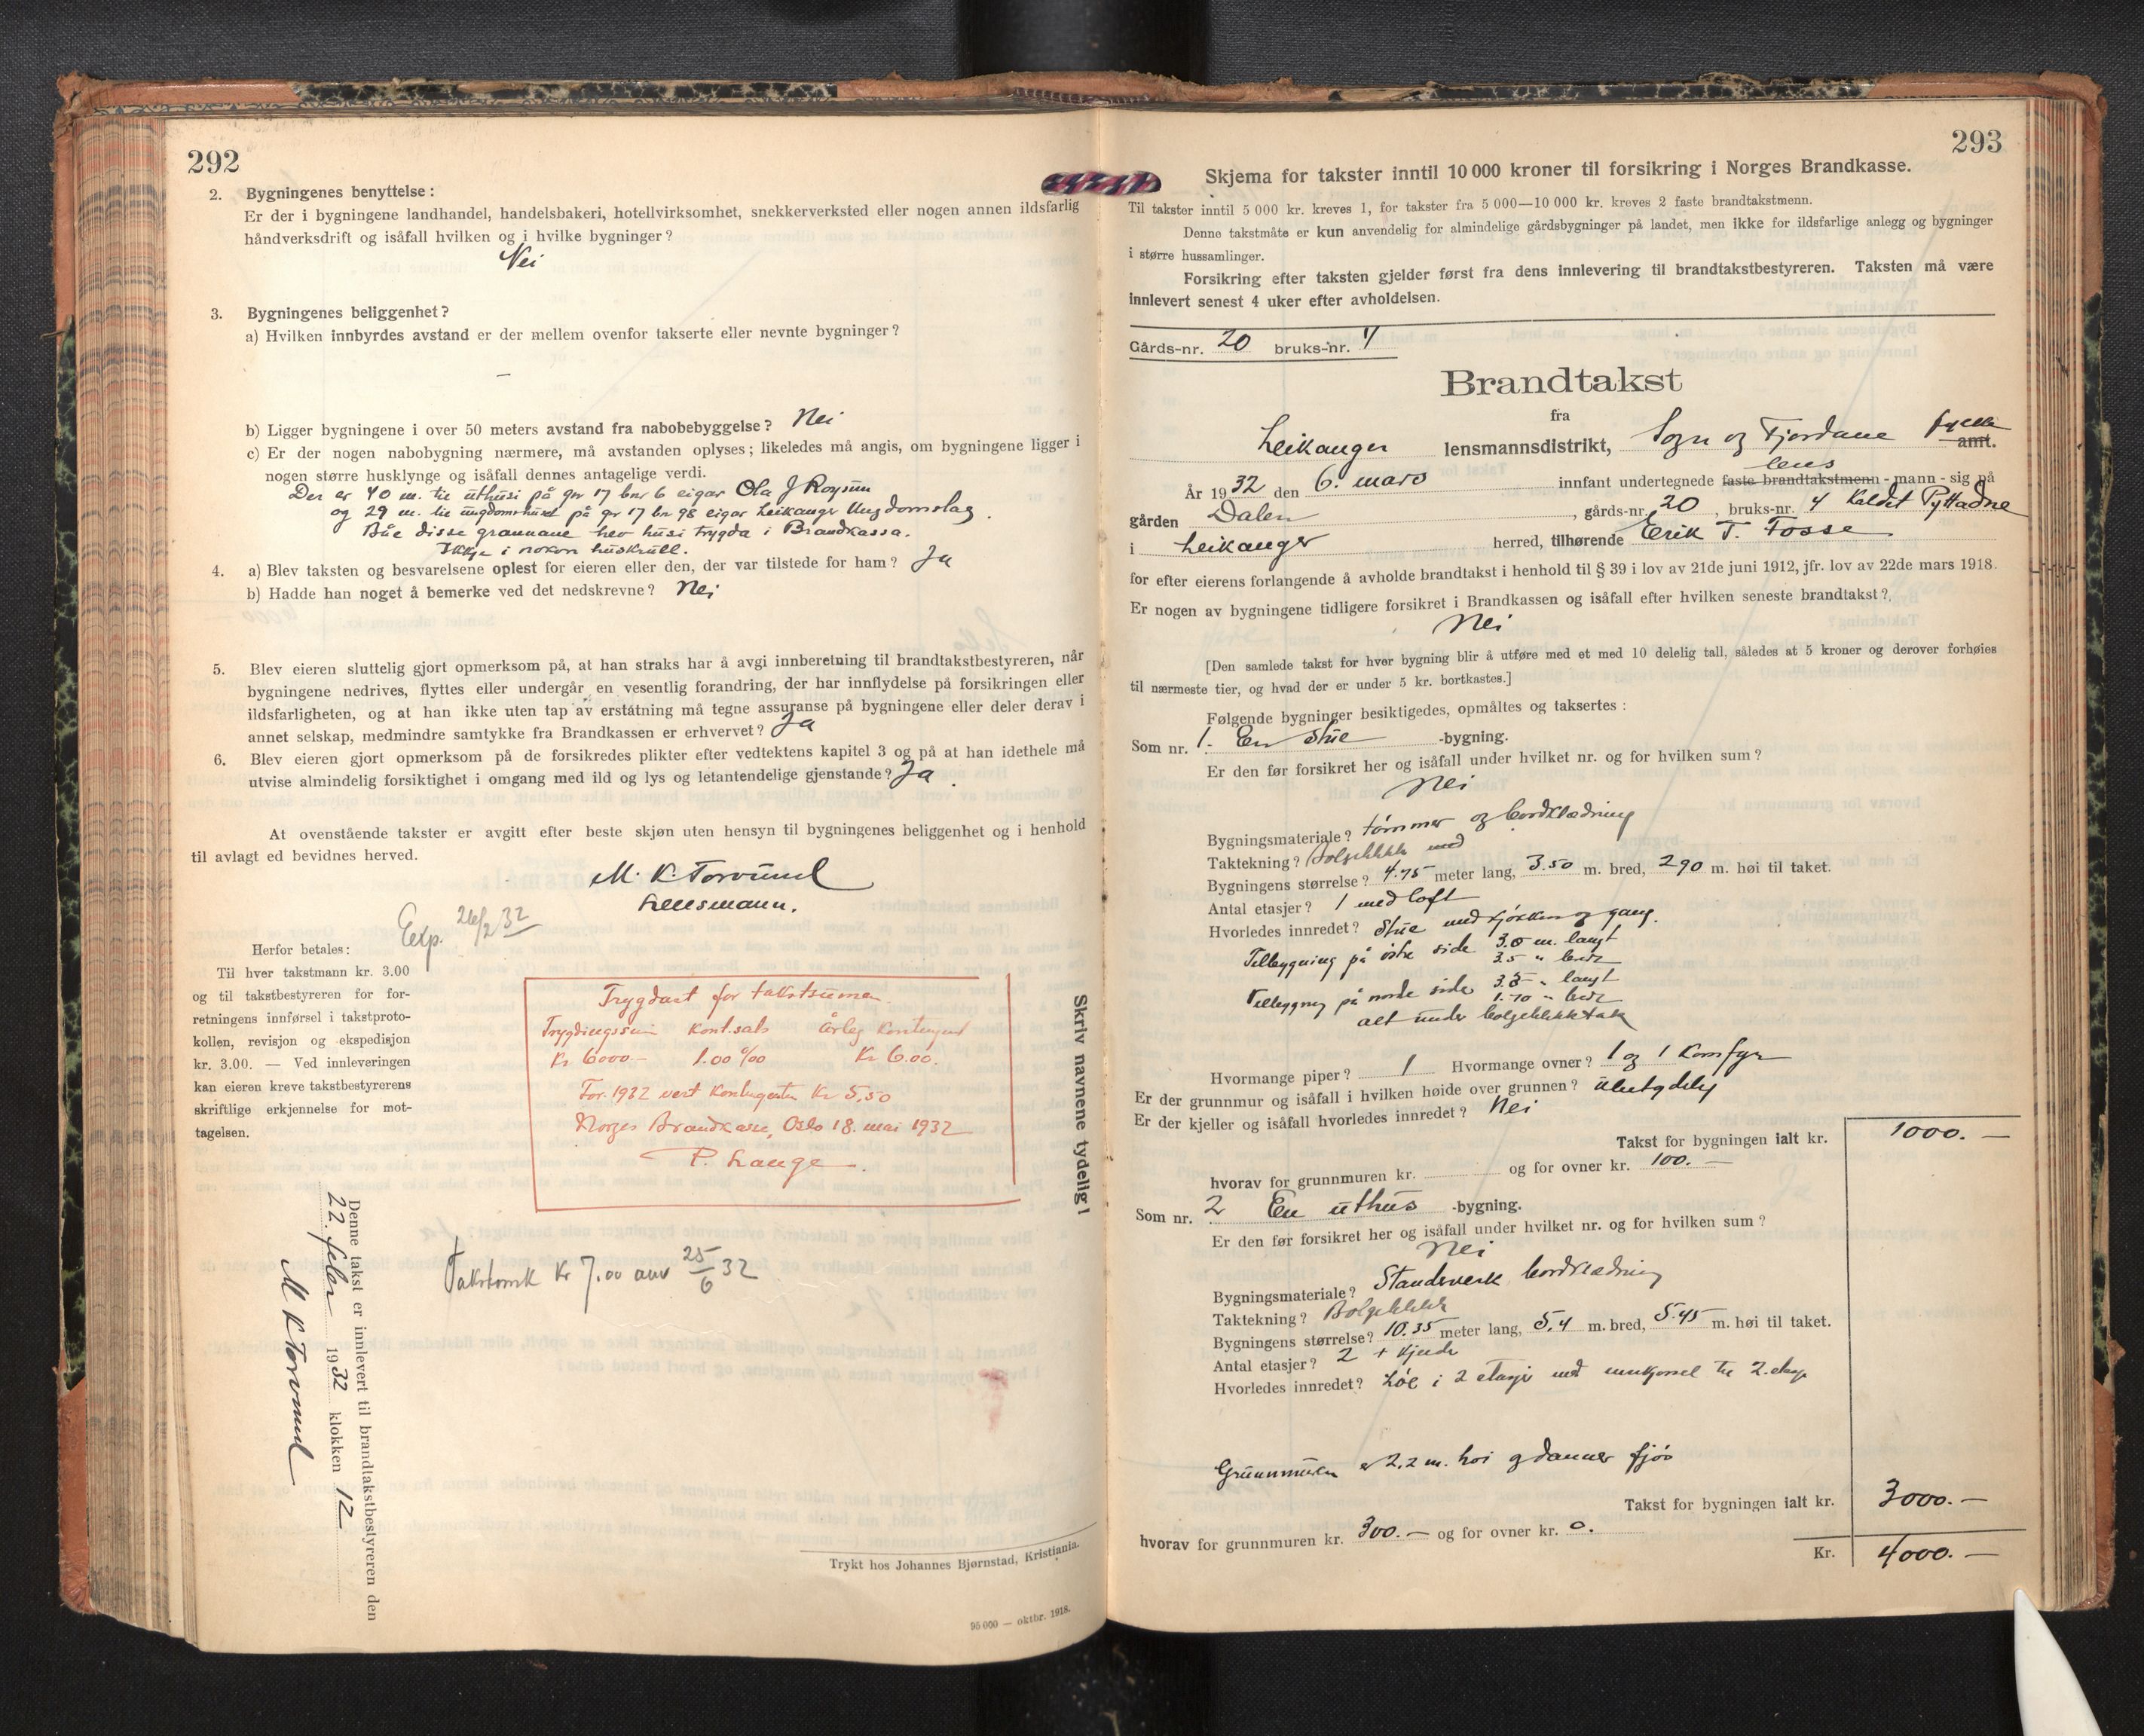 292
2. Bygningenes benyttelse:
Er der i bygningene landhandel, handelsbakeri, hotellvirksomhet, snekkerverksted eller nogen annen ildsfarlig
håndverksdrift og isåfall hvilken og i hvilke bygninger?
Nei
3. Bygningenes beliggenhet?
a) Hvilken innbyrdes avstand er der mellem ovenfor takserte eller nevnte bygninger?
—
b) Ligger bygningene i over 50 meters avstand fra nabobebyggelse? Nei
c) Er der nogen nabobygning nærmere, må avstanden oplyses; likeledes må angis, om bygningene ligger i
nogen større husklynge og isåfall dennes antagelige verdi.
Der er 40 m. til uthusi på gnr 17 bnr 6 eigar Ola J Røysum
og 29 m. til ungdomshuset på gr 17 bn 98 eigar Leikanger Ungdomslag.
Båe disse grannane hev husi trygda i Brandkassa.
Ikkje i nokon huskrull.
4. a) Blev taksten og besvarelsene oplest for eieren eller den, der var tilstede for ham? Ja
b) Hadde han noget å bemerke ved det nedskrevne? Nei
5. Blev eieren sluttelig gjort opmerksom på, at han straks har å avgi innberetning til brandtakstbestyreren, når
bygningene nedrives, flyttes eller undergår en vesentlig forandring, der har innflydelse på forsikringen eller
ildsfarligheten, og at han ikke uten tap av erstatning må tegne assuranse på bygningene eller deler derav i
annet selskap, medmindre samtykke fra Brandkassen er erhvervet? Ja
6. Blev eieren gjort opmerksom på de forsikredes plikter efter vedtektens kapitel 3 og på at han idethele må
utvise almindelig forsiktighet i omgang med ild og lys og letantendelige gjenstande? Ja.
At ovenstående takster er avgitt efter beste skjøn uten hensyn til bygningenes beliggenhet og i henhold
til avlagt ed bevidnes herved.
M. K. Torvund
Lensmann.
Exp. 26/2 32
Herfor betales:
Til hver takstmann kr. 3.00
og til takstbestyreren for for-
retningens innførsel i takstproto-
kollen, revisjon og ekspedisjon
kr. 3.00. — Ved innleveringen
kan eieren kreve takstbestyrerens
skriftlige erkjennelse for mot-
tagelsen.
for takstsumen
Trygdingssum Kont.sats Årleg Kontingent
Kr 6000.- 1.00 ‰ Kr 6.00.
For 1932 vert Kontingenten Kr 5,50
Norges Brandkasse, Oslo 18. mai 1932
P. Lange.
Skriv navnene tydelig!
Kr 7.00 anv 25/6 32
Denne takst er innlevert til brandtakstbestyreren den
22. febr 1932 klokken 12
M K Torvund
Trykt hos Johannes Bjørnstad, Kristiania.
95 000 — oktbr. 1918.
293
Skjema for takster inntil 10 000 kroner til forsikring i Norges Brandkasse.
Til takster inntil 5 000 kr. kreves 1, for takster fra 5 000—10 000 kr. kreves 2 faste brandtakstmenn.
Denne takstmåte er kun anvendelig for almindelige gårdsbygninger på landet, men ikke for ildsfarlige anlegg og bygninger
i større hussamlinger.
Forsikring efter taksten gjelder først fra dens innlevering til brandtakstbestyreren. Taksten må være
innlevert senest 4 uker efter avholdelsen.
Gårds-nr. 20 bruks-nr. 4
Brandtakst
fra
Leikanger lensmannsdistrikt, Sogn og Fjordane fylke amt.
År 1932 den 6. mars innfant undertegnede faste brandtakstmenn lens - mann - sig på
gården Dalen, gårds-nr. 20, bruks-nr. 4 kaldet Pyttadne
i Leikanger herred, tilhørende Erik T. Fosse
for efter eierens forlangende å avholde brandtakst i henhold til § 39 i lov av 21de juni 1912, jfr. lov av 22de mars 1918.
Er nogen av bygningene tidligere forsikret i Brandkassen og isåfall efter hvilken seneste brandtakst?
Nei
[Den samlede takst for hver bygning blir å utføre med et med 10 delelig tall, således at 5 kroner og derover forhøies
til nærmeste tier, og hvad der er under 5 kr. bortkastes.]
Følgende bygninger besiktigedes, opmåltes og taksertes:
Som nr. 1. En stue -bygning.
Er den før forsikret her og isåfall under hvilket nr. og for hvilken sum?
Nei
Bygningsmateriale? tømmer og bordklædning
Taktekning? Bølgeblikk
Bygningens størrelse? 4.75 meter lang, 3.50 m. bred, 2.90 m. høi til taket.
Antal etasjer? 1 med loft
Hvorledes innredet? Stue med kjøkken og gang.
Tilbygning på østre side 3.0 m. langt
3.5 " bredt
Tilbygning på nordre side 3.5 - langt
1.70 - bredt
alt under bølgeblikktak
Hvormange piper? 1 Hvormange ovner? 1 og 1 Komfyr
Er der grunnmur og isåfall i hvilken høide over grunnen? ubetydelig
Er der kjeller og isåfall hvorledes innredet? Nei
Takst for bygningen ialt kr. 1000.—
hvorav for grunnmuren kr. og for ovner kr. 100.—
Som nr. 2 En uthus -bygning.
Er den før forsikret her og isåfall under hvilket nr. og for hvilken sum?
Nei
Bygningsmateriale? Standverk bordklædning
Taktekning? Bølgeblikk
Bygningens størrelse? 10.35 meter lang, 5,4 m. bred, 5.45 m. høi til taket.
Antal etasjer? 2
Hvorledes innredet? Løe i 2 etasjer med innkjørsel til 2. etasje
Grunnmuren er 2,2 m. høi og danner fjøs
Takst for bygningen ialt kr. 3000.—
hvorav for grunnmuren kr. 300.— og for ovner kr. 0.
Kr. 4000.—